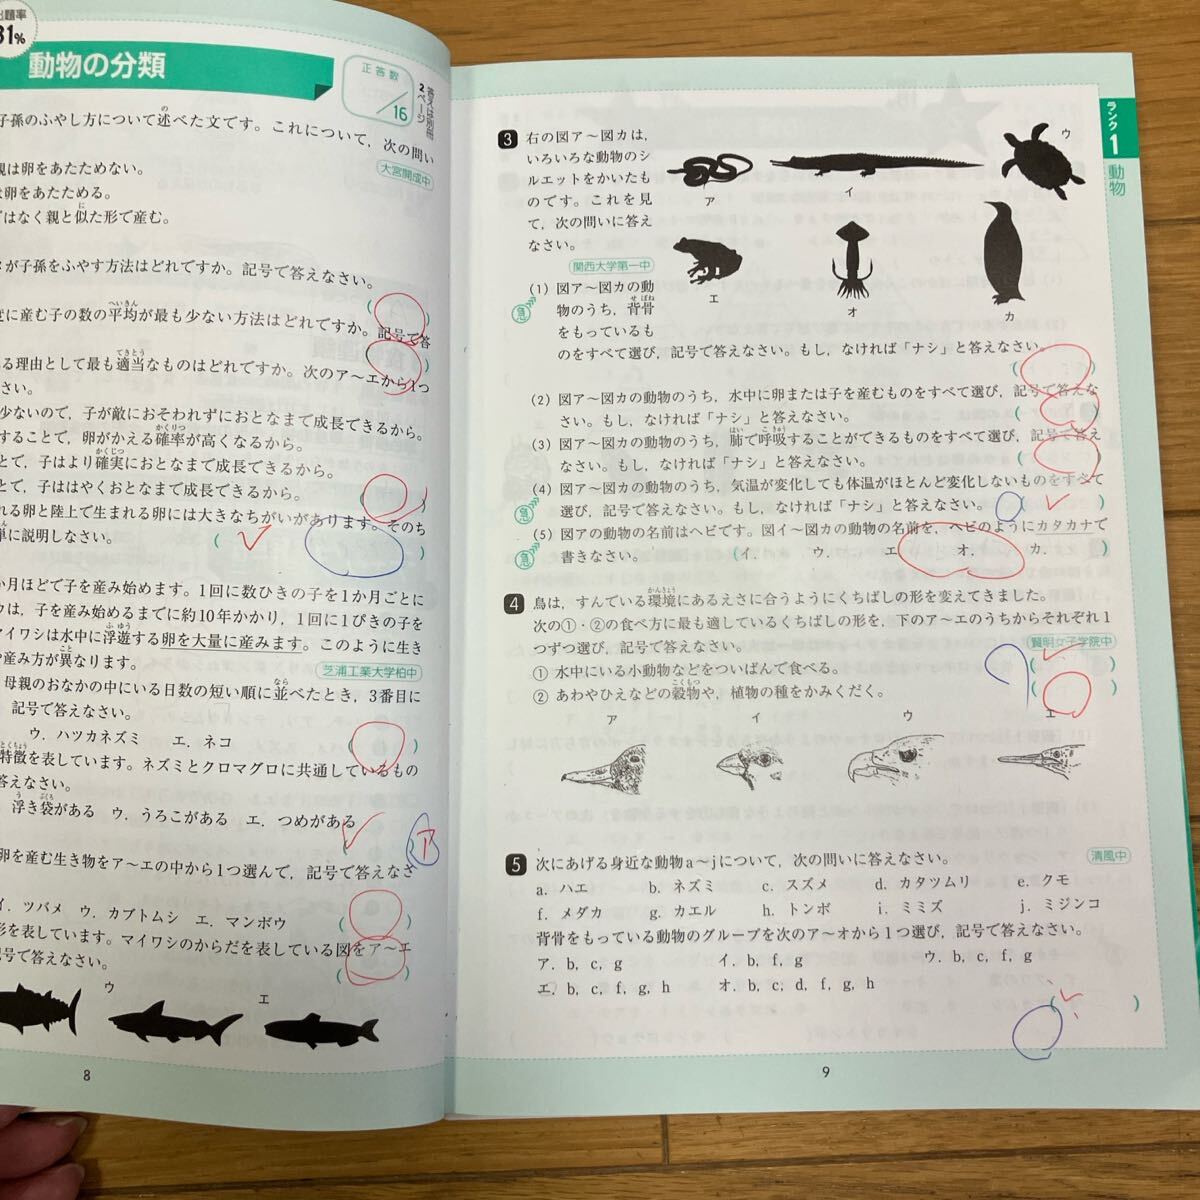 出題率
31%
動物の分類
正答数
/16
答えは別冊
2ページ
子孫のふやし方について述べた文です。これについて，次の問い
大宮開成中
親は卵をあたためない。
は卵をあたためる。
ではなく親と似た形で産む。
が子孫をふやす方法はどれですか。記号で答えなさい。
度に産む子の数の平均が最も少ない方法はどれですか。記号で答
ある理由として最も適当なものはどれですか。次のア～エから1つ
さい。
少ないので，子が敵におそわれずにおとなまで成長できるから。
することで，卵がかえる確率が高くなるから。
とで，子はより確実におとなまで成長できるから。
とで，子ははやくおとなまで成長できるから。
れる卵と陸上で生まれる卵には大きなちがいがあります。そのち
単に説明しなさい。
か月ほどで子を産み始めます。1回に数ひきの子を1か月ごとに
ウは，子を産み始めるまでに約10年かかり，1回に1ぴきの子を
マイワシは水中に浮遊する卵を大量に産みます。このように生き
や産み方が異なります。
芝浦工業大学柏中
母親のおなかの中にいる日数の短い順に並べたとき，3番目に
記号で答えなさい。
ウ．ハツカネズミ エ．ネコ
特徴を表しています。ネズミとクロマグロに共通しているもの
答えなさい。
浮き袋がある ウ．うろこがある エ．つめがある
ア
卵を産む生き物をア～エの中から1つ選んで，記号で答えなさ
イ．ツバメ ウ．カブトムシ エ．マンボウ
形を表しています。マイワシのからだを表している図をア～エ
記号で答えなさい。
ウ
エ
8
ランク1
動物
3 右の図ア～図カは，
いろいろな動物のシ
ルエットをかいたも
のです。これを見
て，次の問いに答え
なさい。
関西大学第一中
ア
イ
ウ
エ
オ
カ
(1) 図ア～図カの動
急
物のうち，背骨
をもっているも
のをすべて選び，記号で答えなさい。もし，なければ「ナシ」と答えなさい。
(2) 図ア～図カの動物のうち，水中に卵または子を産むものをすべて選び，記号で答えな
さい。もし，なければ「ナシ」と答えなさい。
(3) 図ア～図カの動物のうち，肺で呼吸することができるものをすべて選び，記号で答え
なさい。もし，なければ「ナシ」と答えなさい。
(4) 図ア～図カの動物のうち，気温が変化しても体温がほとんど変化しないものをすべて
急
選び，記号で答えなさい。もし，なければ「ナシ」と答えなさい。
(5) 図アの動物の名前はヘビです。図イ～図カの動物の名前を，ヘビのようにカタカナで
急
書きなさい。 (イ. ウ. エ. オ. カ. )
4 鳥は，すんでいる環境にあるえさに合うようにくちばしの形を変えてきました。
次の①・②の食べ方に最も適しているくちばしの形を，下のア～エのうちからそれぞれ1
つずつ選び，記号で答えなさい。
賢明女子学院中
① 水中にいる小動物などをついばんで食べる。
② あわやひえなどの穀物や，植物の種をかみくだく。
ア イ ウ エ
5 次にあげる身近な動物a～jについて，次の問いに答えなさい。
清風中
a. ハエ b. ネズミ c. スズメ d. カタツムリ e. クモ
f. メダカ g. カエル h. トンボ i. ミミズ j. ミジンコ
背骨をもっている動物のグループを次のア～オから1つ選び，記号で答えなさい。
ア. b, c, g イ. b, f, g ウ. b, c, f, g
エ. b, c, f, g, h オ. b, c, d, f, g, h
9